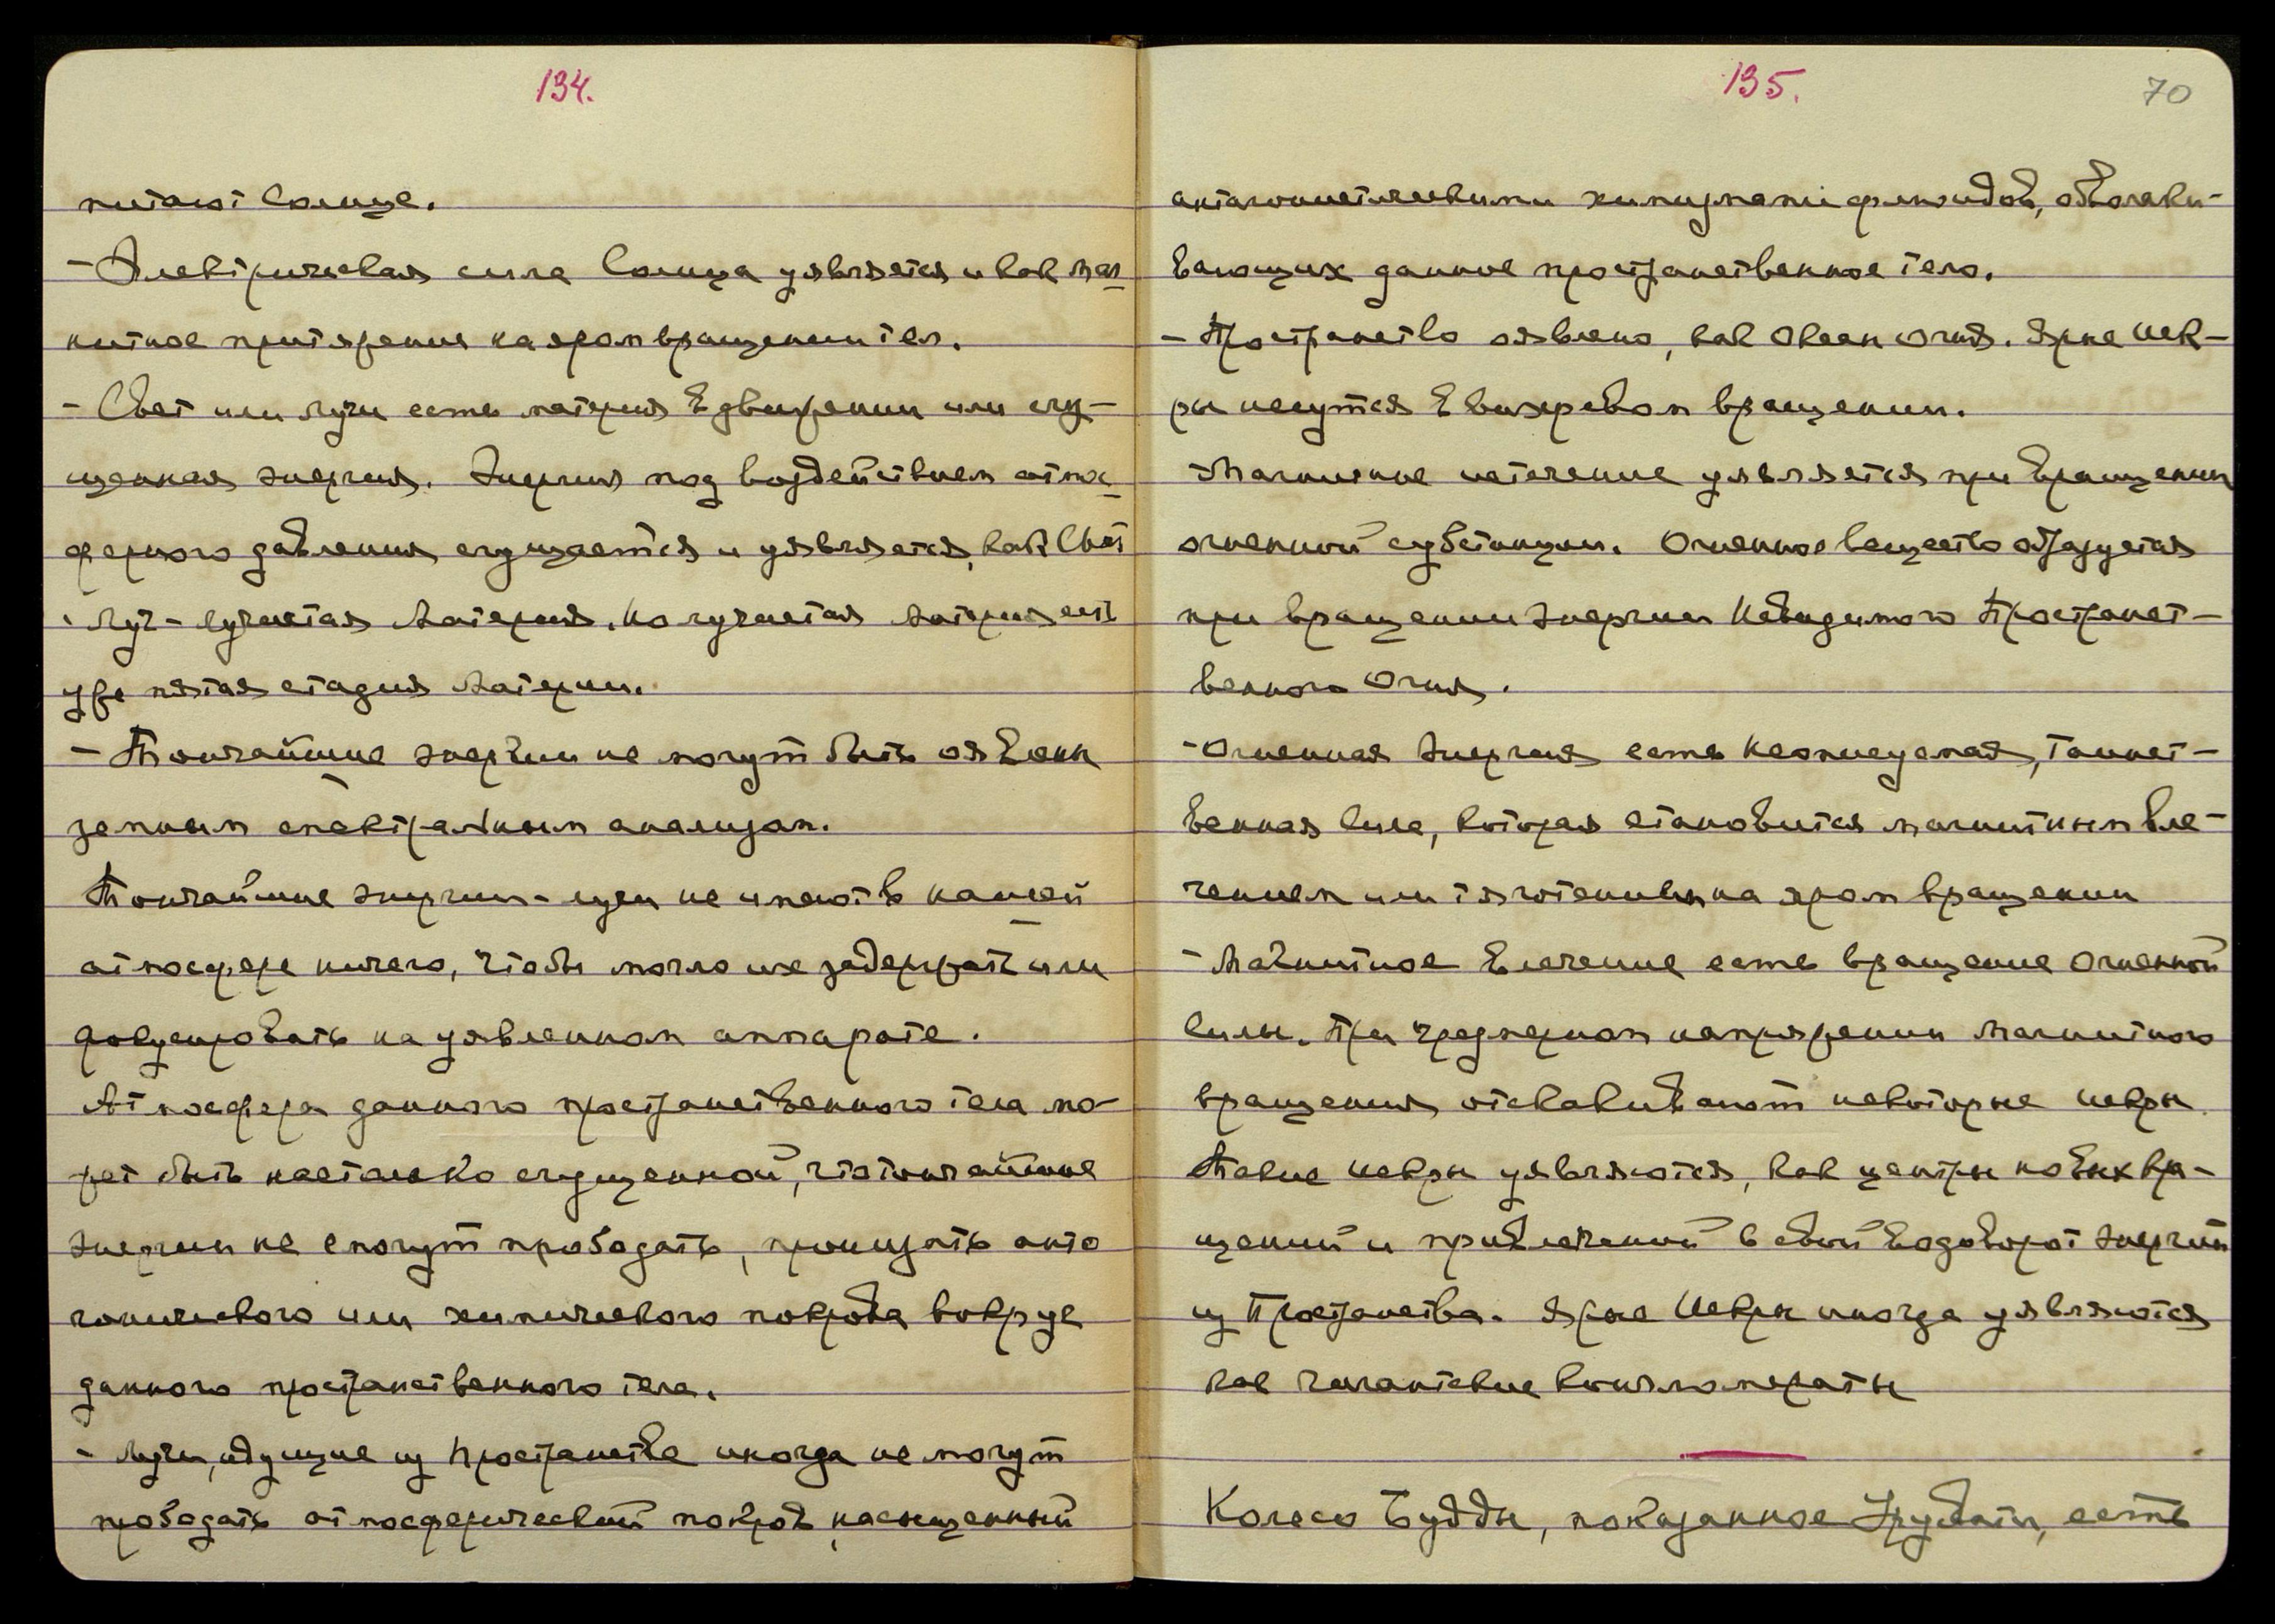 134.
питают Солнце.
- Электрическая сила Солнца уявляется и как маг-
нитное притяжение на яром вращении тел.
- Свет или лучи есть материя в движении или сгу-
щенная энергия. Энергия под воздействием атмос-
ферного давления сгущается и уявляется, как Свет
. Луч - лучистая Материя. Но лучистая Материя есть
уже пятая стадия Материи.
- Тончайшие энергии не могут быть оявлены
земным спектральным анализом.
Тончайшие энергии - лучи не имеют в нашей
атмосфере ничего, чтобы могло их задержать или
фокусировать на уявленном аппарате.
Атмосфера данного пространственного тела мо-
жет быть настолько сгущенной, что тончайшие
энергии не смогут прободать, пронизать анта
гонического или химического покрова вокруг
данного пространственного тела.
- Лучи, идущие из Пространства иногда не могут
прободать атмосферический покров, насыщенный
135.
70
антагонистическими химизмами флюидов, обволаки-
вающих данное пространственное тело.
- Пространство оявлено, как Океан Огня. Ярые Иск-
ры несутся в вихревом вращении.
- Магнитное истечение уявляется при вращении
огненной субстанции. Огненное вещество образуется
при вращении энергии Невидимого Пространст-
венного Огня.
- Огненная Энергия есть Неописуемая, Таинст-
венная Сила, которая становится магнитным вле-
чением или тяготением на яром вращении
- Магнитное Влечение есть вращение Огненной
Силы. При чрезмерном напряжении Магнитного
вращения отскакивают некоторые искры.
Такие искры уявляются, как центры новых вра-
щений и привлечений в свой водоворот энергий
из Пространства. Ярые Искры иногда уявляются
как гигантские конгломераты
Колесо Будды, показанное Урусвати, есть